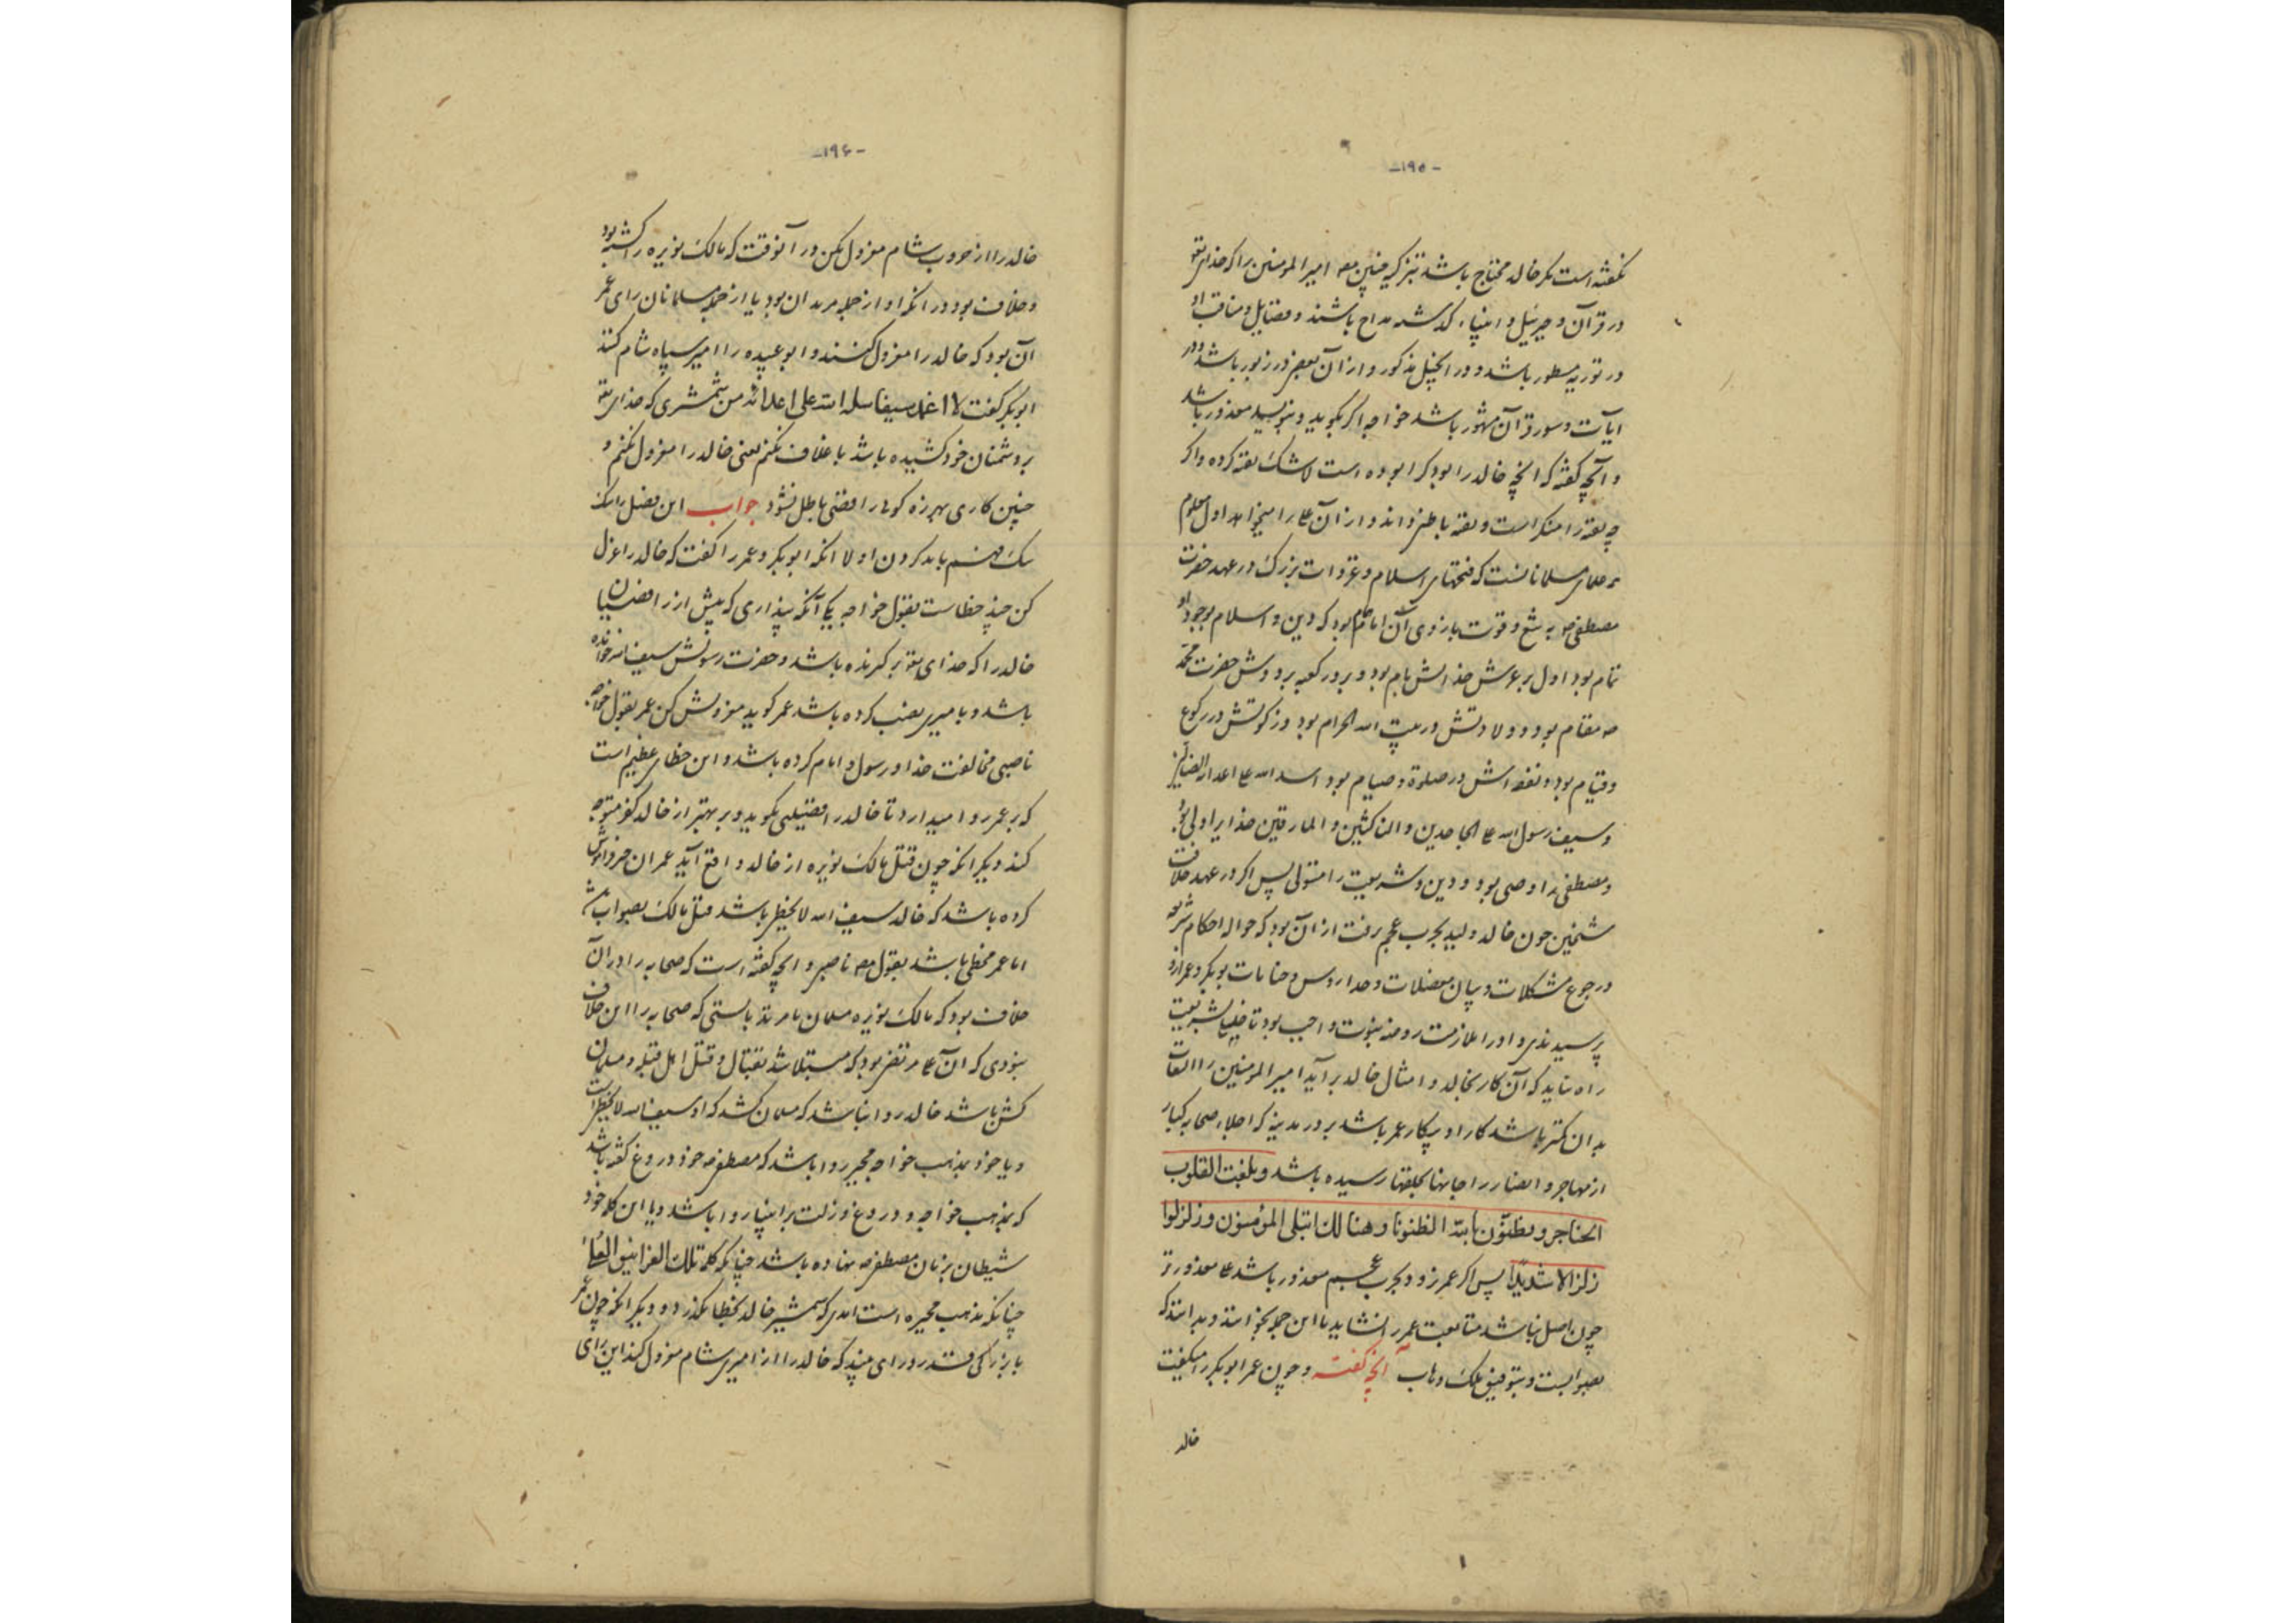 -۱۹۵-
نگفته است مگر خالد محتاج باشد بتزکیه چنین مصـ امیرالمومنین را که خدای تعـ
در قرآن و جبرئیل و انبیاء گذشته مداح باشند و فضایل و مناقب او
در توریة مسطور باشد و در انجیل مذکور و از آن بعضی در زبور باشد و در
آیات و سور قرآن مشهور باشد خواجه اگر بگوید و بنویسد معذور باشد
و آنچه گفته که انچه خالد را بود کرا بوده است لاشک تقیه کرده و اگر
چه تقیه را منکر است و تقیه باطنی داند و از آن علی را میخواهد اول معلوم
علمای مسلمانانست که فتحهای اسلام و غزوات بزرگ در عهد حضرت
مصطفی صـ به تیغ و قوت بازوی آن امام بود که دین و اسلام بوجود او
تمام بود اول بر عرش خدایش نام بود و بر در کعبه بر دوش حضرت محمد
صـ مقام بود و ولادتش در بیت الله الحرام بود و زکوتش در رکوع
و قیام بود و نفقه اش در صلوة و صیام بود اسد الله علی اعدائه
و سیف رسول الله علی الجاحدین و الناکثین و المارقین خدایرا ولی بود
و مصطفی را وصی بود و دین و شریعت را متولی پس اگر در عهد خلافت
شیخین چون خالد ولید بحرب عجم رفت از آن بود که حواله احکام شریعت
و رجوع مشکلات و بیان معضلات و حد و جنایات بوبکر و عمر از او
پرسیدندی و او را ملازمت روضه نبوت واجب بود تا خلیفه شریعت
راه نماید که آن کار بخالد و امثال خالد برآید امیر المومنین را التفات
بدان کمتر باشد کار او پیکار عمر باشد بر در مدینه که اجلاء صحابه کبار
از مهاجر و انصار را جانها بحلقها رسیده باشد و بلغت القلوب
الحناجر و تظنون بالله الظنونا و هنالک ابتلی المؤمنون و زلزلوا
زلزالا شدیدا پس اگر عمر زود بحرب عجم معذور باشد علی معذورتر
چون اصل نباشد متابعت عمر را نشاید تا این جمله بخوانند و بدانند که
بصوابست و بتوفیق ملک وهاب آنچه گفته و چون عمر ابوبکر را میگفت
خالد
-۱۹۶-
خالد را از حروب شام معزول کن در آنوقت که مالک نویره را کشته بود
و خلاف بود در انکه او از جمله مرتدان بود یا از جمله مسلمانان رای عمر
آن بود که خالد را معزول کنند و ابو عبیده را امیر سپاه شام کنند
ابوبکر گفت لا اغمد سیفا سله الله علی اعدائه من شمشیری که خدای تعـ
بر دشمنان خود کشیده باشد با غلاف نکنم یعنی خالد را معزول نکنم و
چنین کاری بهرزه گوئی رافضی باطل نشود جواب این فصل را
یک فهم باید کردن اولا انکه ابوبکر و عمر را گفت که خالد را عزل
کن چند خطاست بقول خواجه یکی آنکه پنداری که پیش از رافضیان
خالد را که خدای تعـ برگزیده باشد و حضرت رسولش سیف الله خوانده
باشد و بامیری نصب کرده باشد عمر گوید معزولش کن عمر بقول خواجه
ناصبی مخالفت خدا و رسول و امام کرده باشد و این خطای عظیم است
که بر عمر روا میدارد تا خالد را فضیلتی بگوید و بر بهتر از خالد کفر متوجه
کند دیگر انکه چون قتل مالک نویره از خالد واقع آید عمر آن خبر فراموش
کرده باشد که خالد سیف الله لا یخطی باشد قتل مالک بصواب باشد
اما عمر مخطی باشد بقول مصـ ناصبی و انچه گفته است که صحابه را در آن
خلاف بود که مالک نویره مسلمان یا مرتد بایستی که صحابه را این خلاف
نبودی که آن علی مرتضی بود که مبتلا شد بقتال و قتل اهل قبله و مسلمان
کش باشد خالد روا نباشد که مسلمان کشد که او سیف الله لا یخطی است
و یا خود بمذهب خواجه مجبر روا باشد که مصطفی صـ خود دروغ گفته باشد
که بمذهب خواجه و دروغ و زلت بر انبیا روا باشد و یا این کلمه خود
شیطان بر زبان مصطفی صـ نهاده باشد چنانکه کلمه تلک الغرانیق العلی
چنانکه مذهب مجبره است اندی که شمشیر خالد بخطا نگذرد و دیگر انکه چون عمر
با بزرگی قدر و رای بیند که خالد را از امیری شام معزول کند این رای